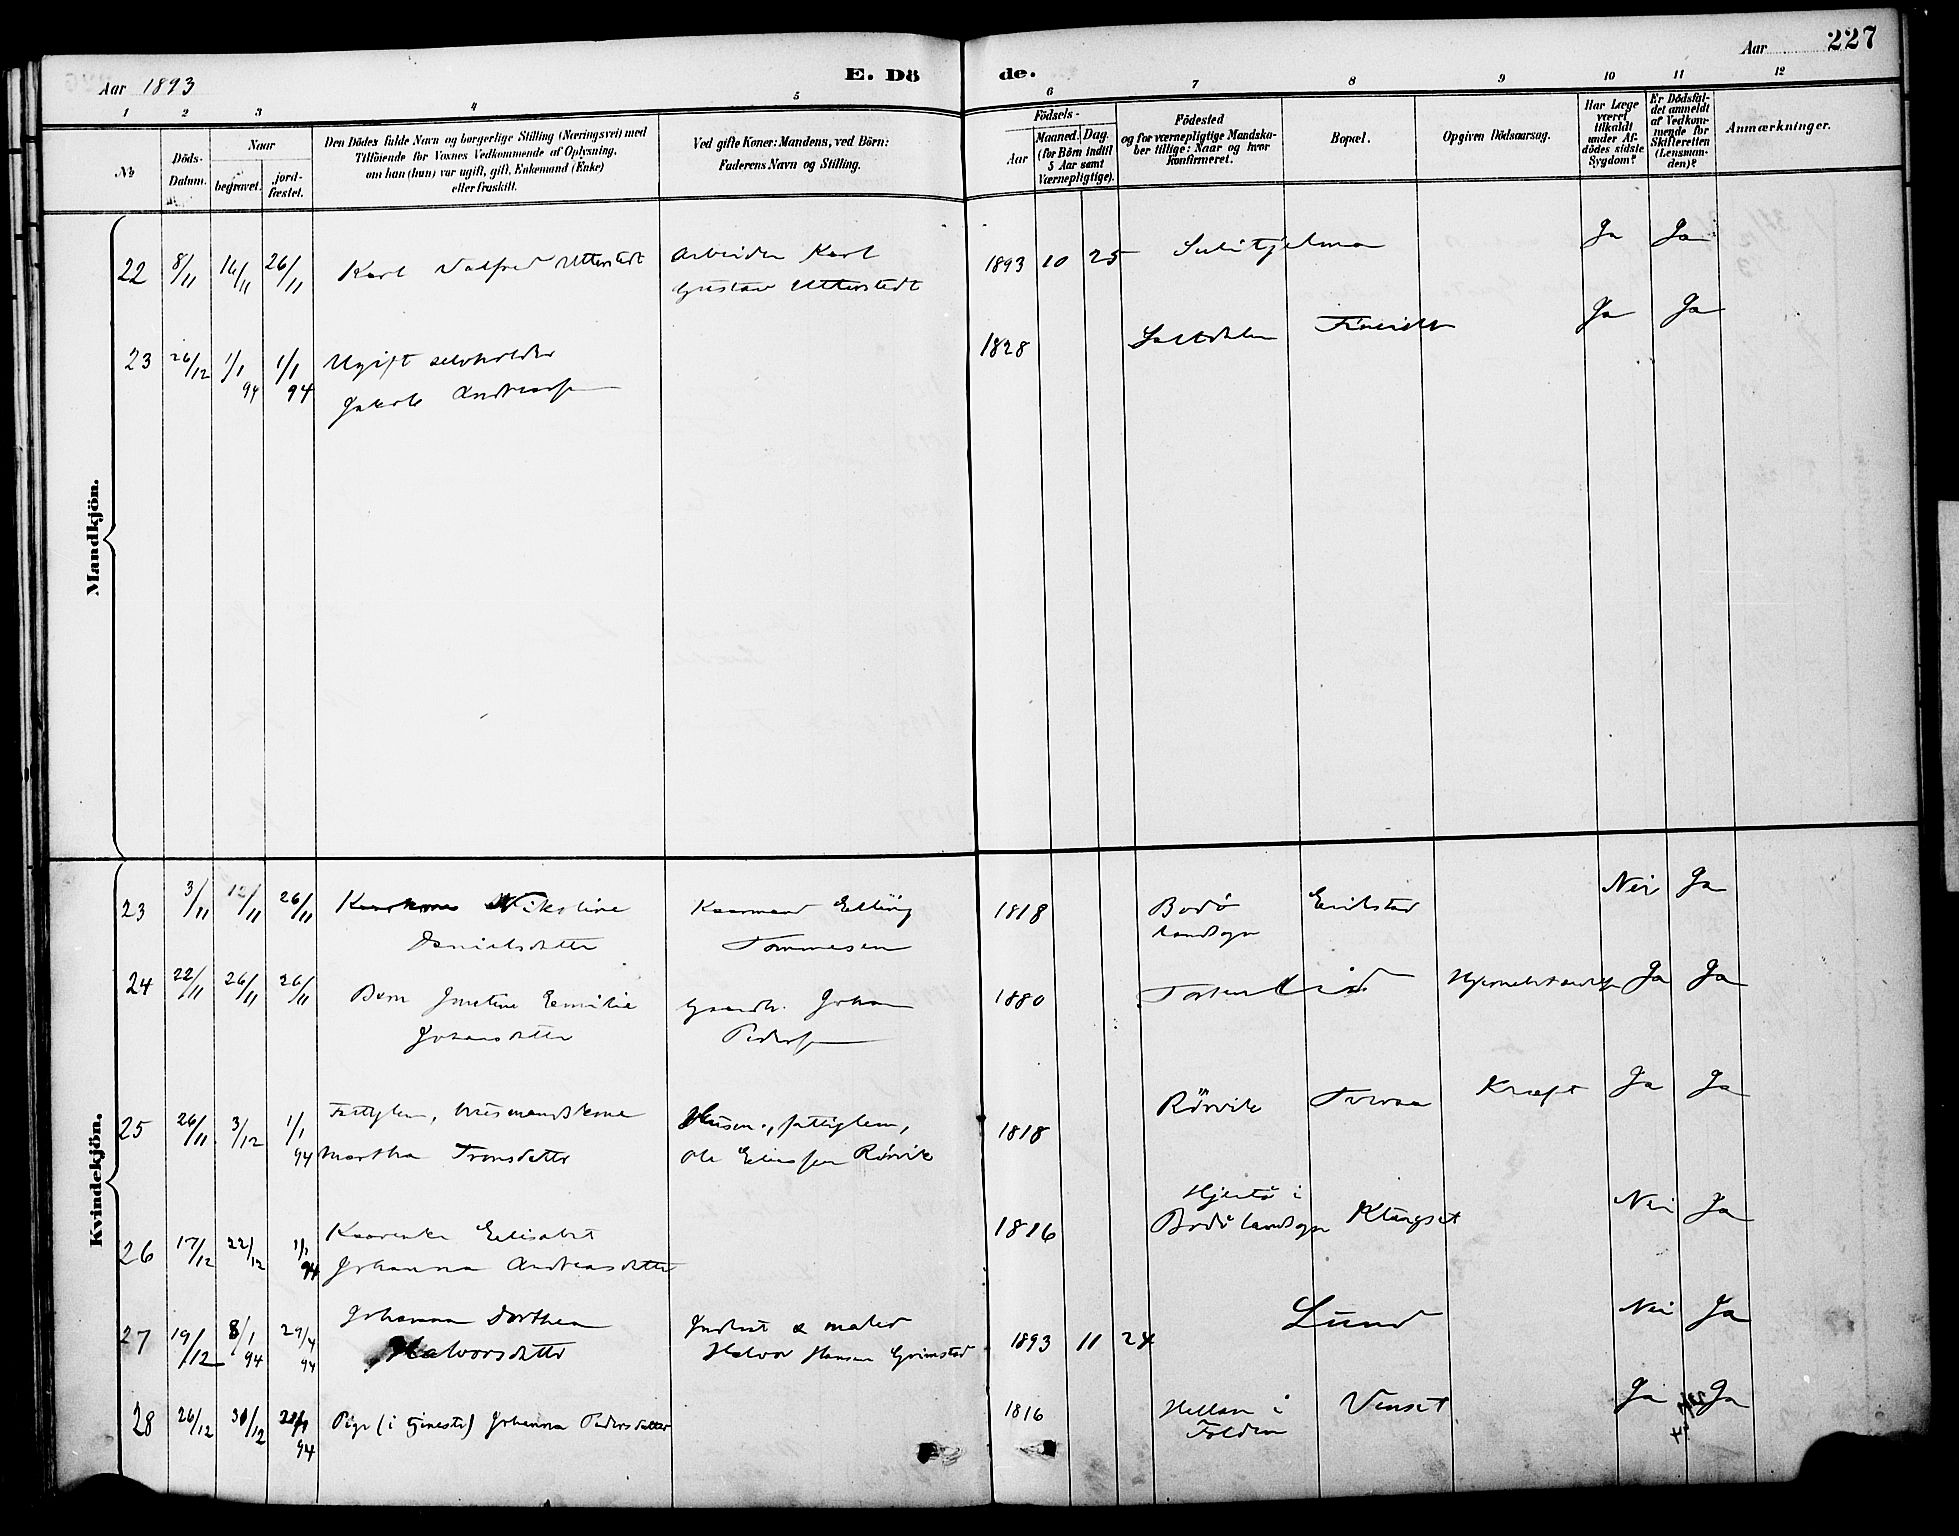 Aar 1893
E. Dö
de.
Aar
227
1 2 3 4 5 6 7 8 9 10 11 12
№
Döds-
Datum.
Naar
begravet.
jord-
fæstet.
Den Dödes fulde Navn og borgerlige Stilling (Næringsvei) med
Tilföiende for Voxnes Vedkommende af Oplysning,
om han (hun) var ugift, gift, Enkemand (Enke)
eller fraskilt.
Ved gifte Koner: Mandens, ved Börn:
Faderens Navn og Stilling.
Födsels-
Aar
Maaned. Dag.
(for Börn indtil
5 Aar samt
Værnepligtige).
Födested
og for værnepligtige Mandska-
ber tillige: Naar og hvor
konfirmeret.
Bopæl.
Opgiven Dödsaarsag.
Har Læge
været
tilkaldt
under Af-
dödes sidste
Sygdom?
Er Dödsfal-
det anmeldt
af Vedkom-
mende for
Skifteretten
(Lensman-
den)?
Anmærkninger.
Mandkjön.
22 8/11 16/11 26/11 Karl Valfred Utterstedt Arbeider Karl 1893 10 25 Sulitjelma Ja Ja
Gustav Utterstedt
23 26/12 1/1 94 1/1 94 Ugift selvholder 1828 Saltdalen Fineidet Ja Ja
Jakob Andreassen
Kvindekjön.
23 3/11 12/11 26/11 Nikoline Kaarmand Elling 1818 Bodö Erikstad Nei Ja
Danielsdatter Tommesen Landsogn
24 22/11 26/11 26/11 Barn Justine Emilie Gaardb. Johan 1880 Ja Ja
Johansdatter Pedersen
25 26/11 3/12 1/1 94 Fattiglem, husmandskone Husm., fattiglem, 1818 Rörvik Tveraa Kræft Ja Ja
Martha Tronsdatter Ole Eliassen Rörvik
26 17/12 22/12 1/1 94 Kaarenke Elisabet 1816 Hjertö i Klungset Nei Ja
Johanna Andreasdatter Bodö landsogn
27 19/12 8/1 94 29/4 94 Johanna Dorthea Inderst & maler 1893 11 24 Lund Nei Ja
Halvorsdatter Halvor Hansen Grimstad
28 26/12 30/12 94 Pige (i tjeneste) Johanna Pedersdatter 1816 i Venset Ja Ja
Folden